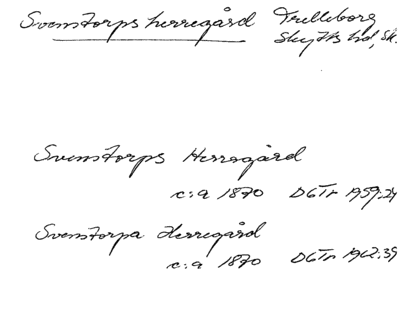 Svenstorps herregård Trelleborg
Skytts hd, Sk.
Svenstorps Herregård
c:a 1870 DGTr 1959:24
Svenstorpa Herregård
c:a 1870 DGTr 1962:39